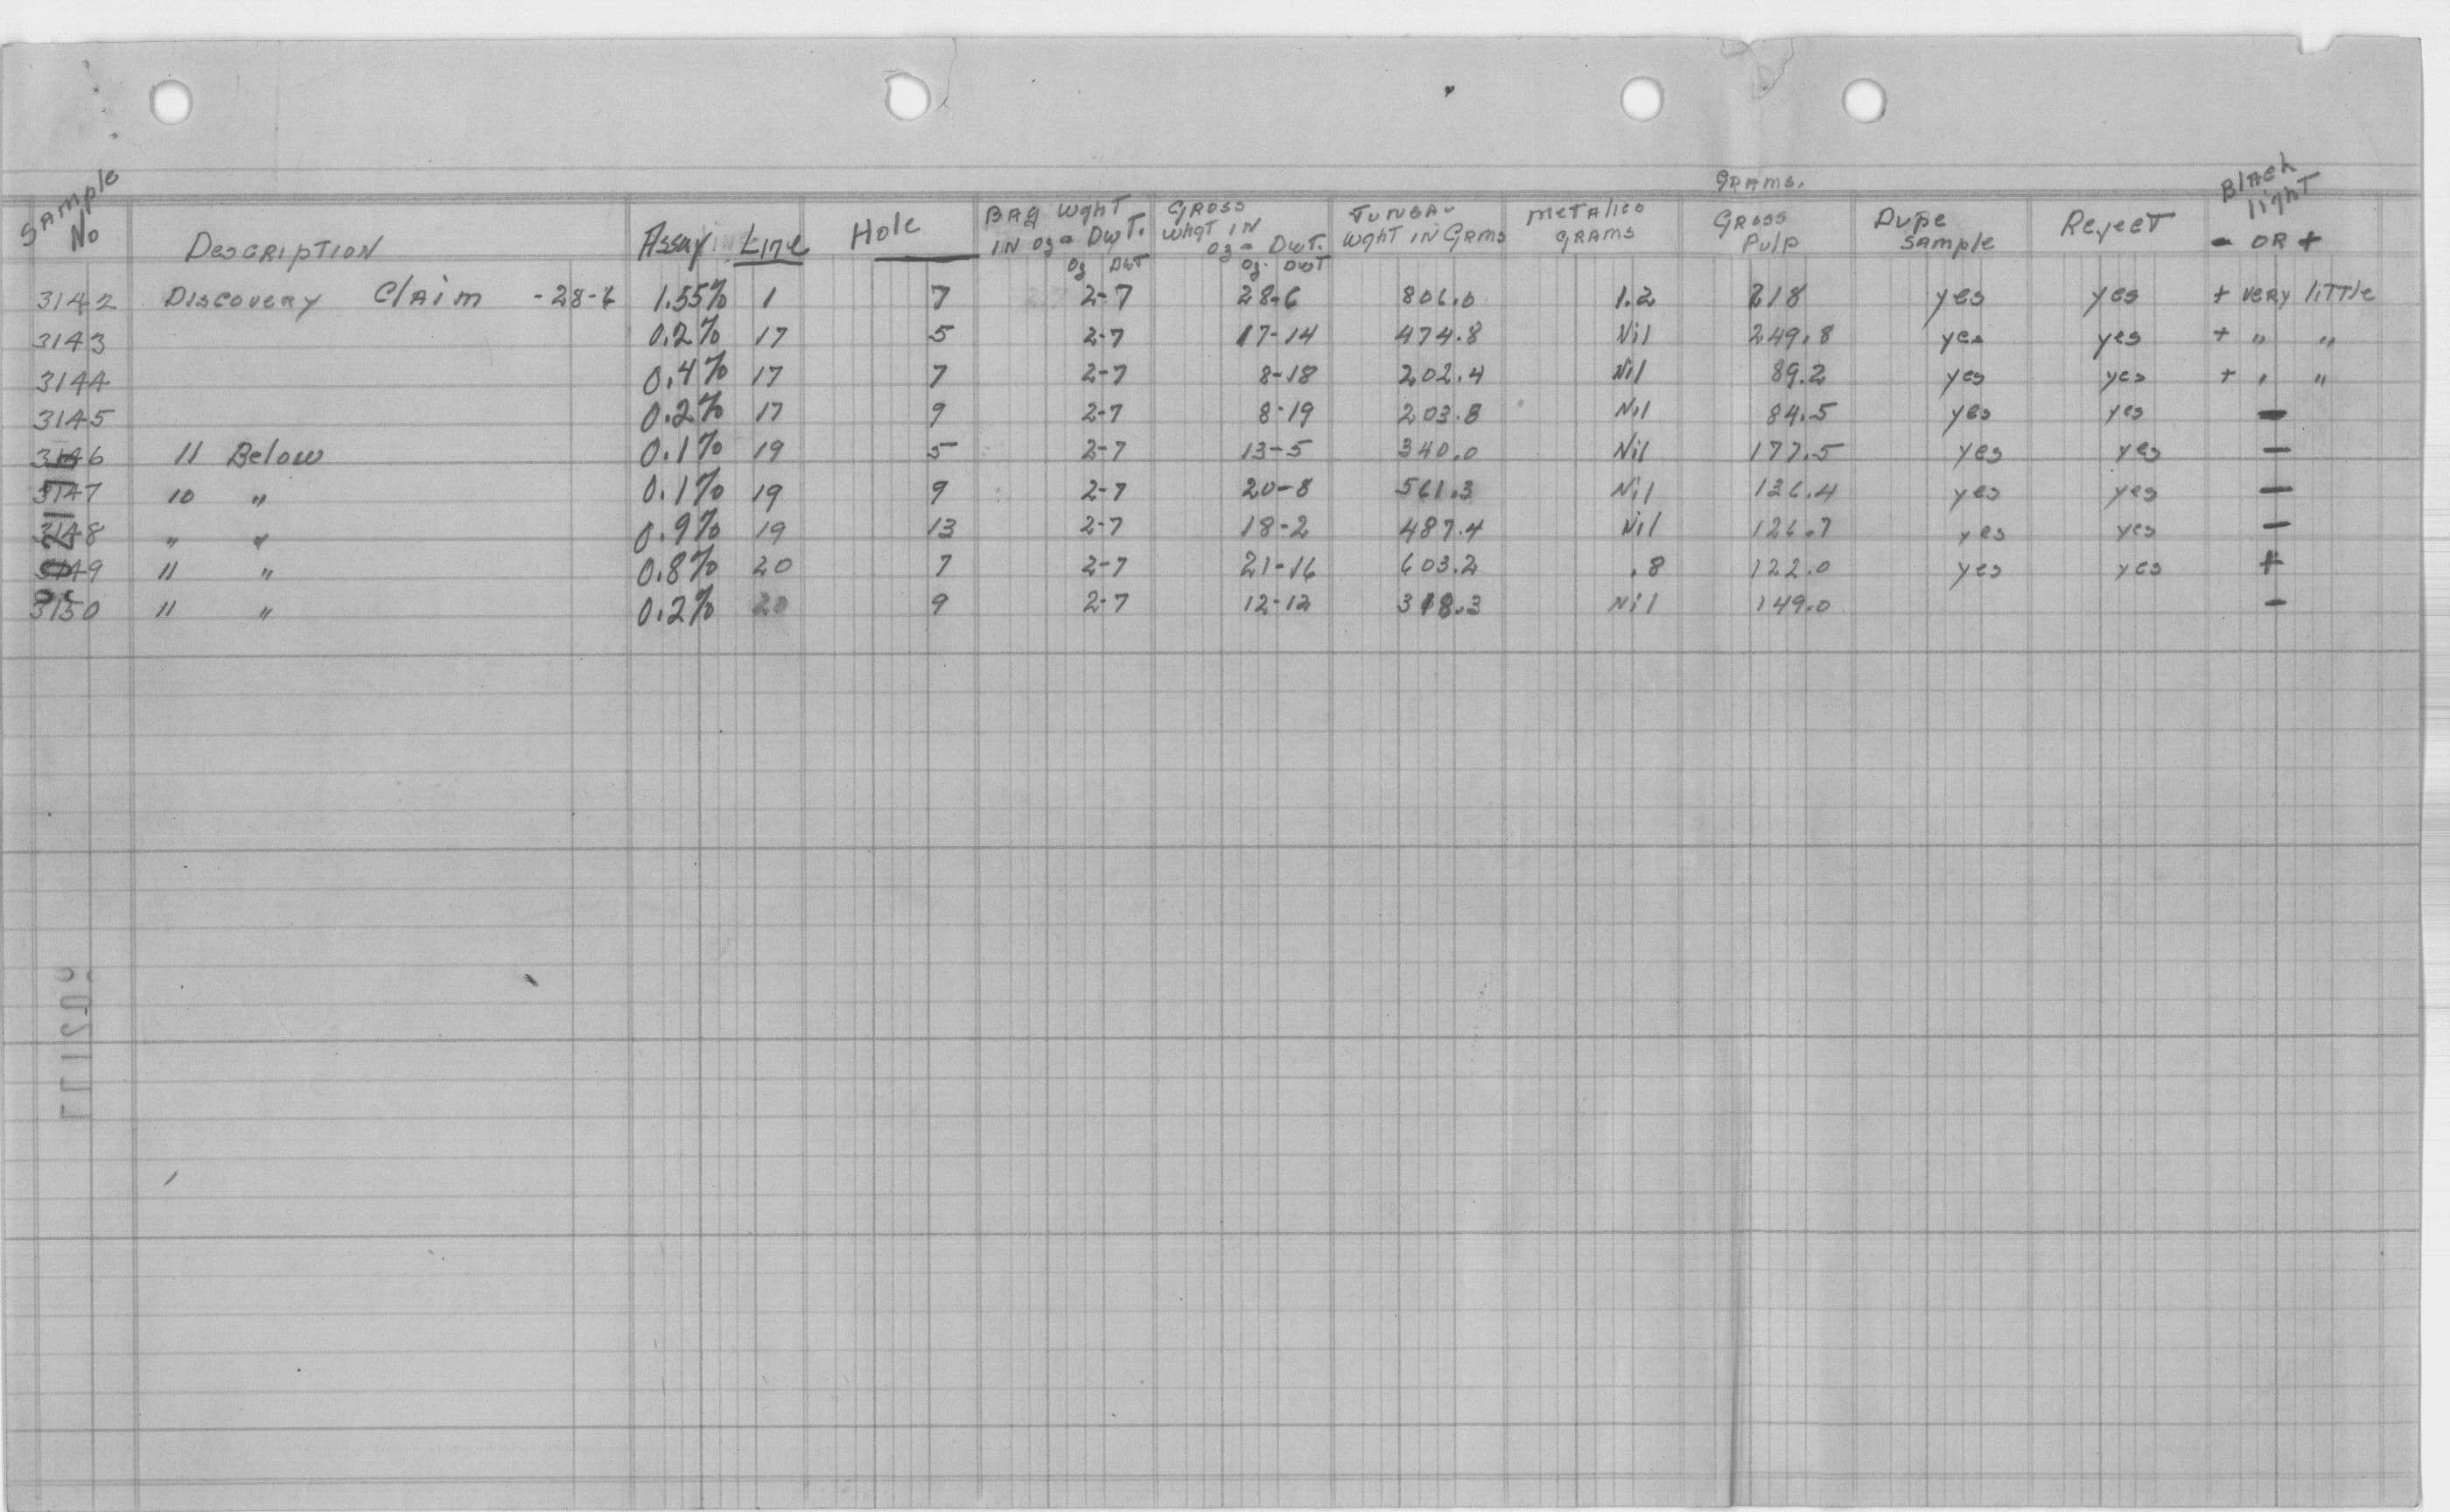 GRAMS.
Sample No DESCRIPTION Assay Line Hole BAg wghT IN Oz - DwT. Oz DwT GROSS whgT IN Oz - DwT. Oz. DwT wghT IN GRMS METALICS GRAMS GROSS Pulp DUPE SAMPLE REJECT BlAck lighT - OR +
3142 DISCOVERY ClAim -28-6 1.55% 1 7 2-7 28-6 806.0 1.2 218 yes yes + VERY liTTle
3143 0.2% 17 5 2-7 17-14 474.8 Nil 249.8 yes yes + " "
3144 0.4% 17 7 2-7 8-18 202.4 Nil 89.2 yes yes + " "
3145 0.2% 17 9 2-7 8-19 203.8 Nil 84.5 yes yes -
3146 11 Below 0.1% 19 5 2-7 13-5 340.0 Nil 177.5 yes yes -
3147 10 " 0.1% 19 9 2-7 20-8 561.3 Nil 136.4 yes yes -
3148 " " 0.9% 19 13 2-7 18-2 487.4 Nil 126.7 yes yes -
3149 11 " 0.8% 20 7 2-7 21-16 603.2 .8 122.0 yes yes +
3150 11 " 0.2% 20 9 2-7 12-12 318.3 Nil 149.0 -